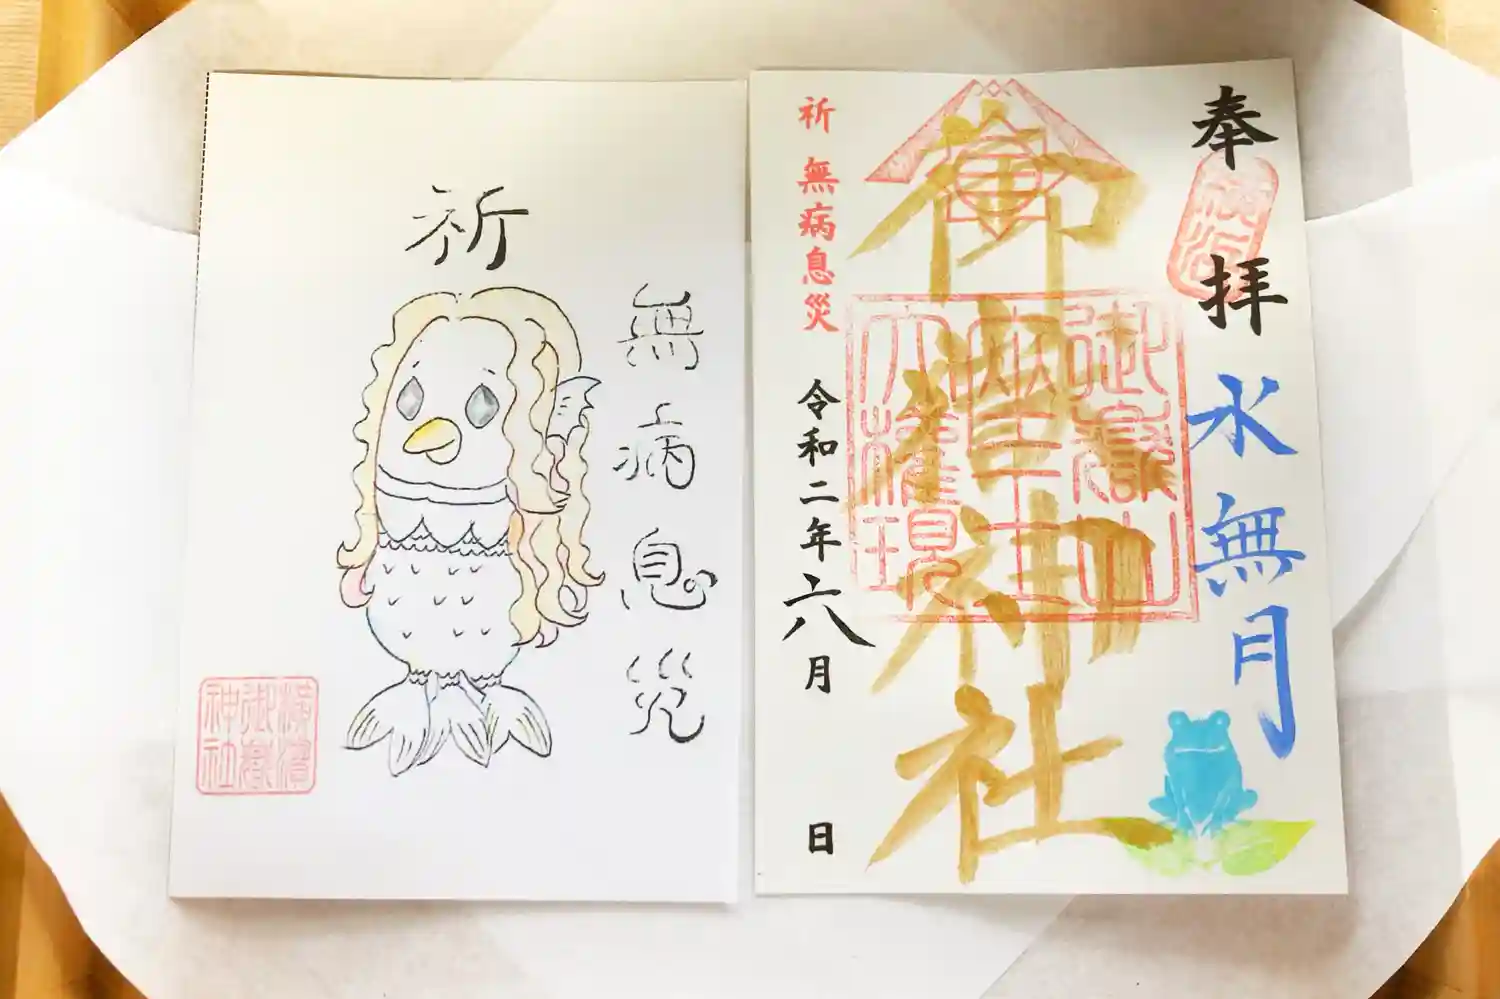 祈
無病息災
横濱
御嶽
神社
奉拝
水無月
横浜
御嶽神社
御嶽山
座王大権現
祈 無病息災
令和二年六月 日